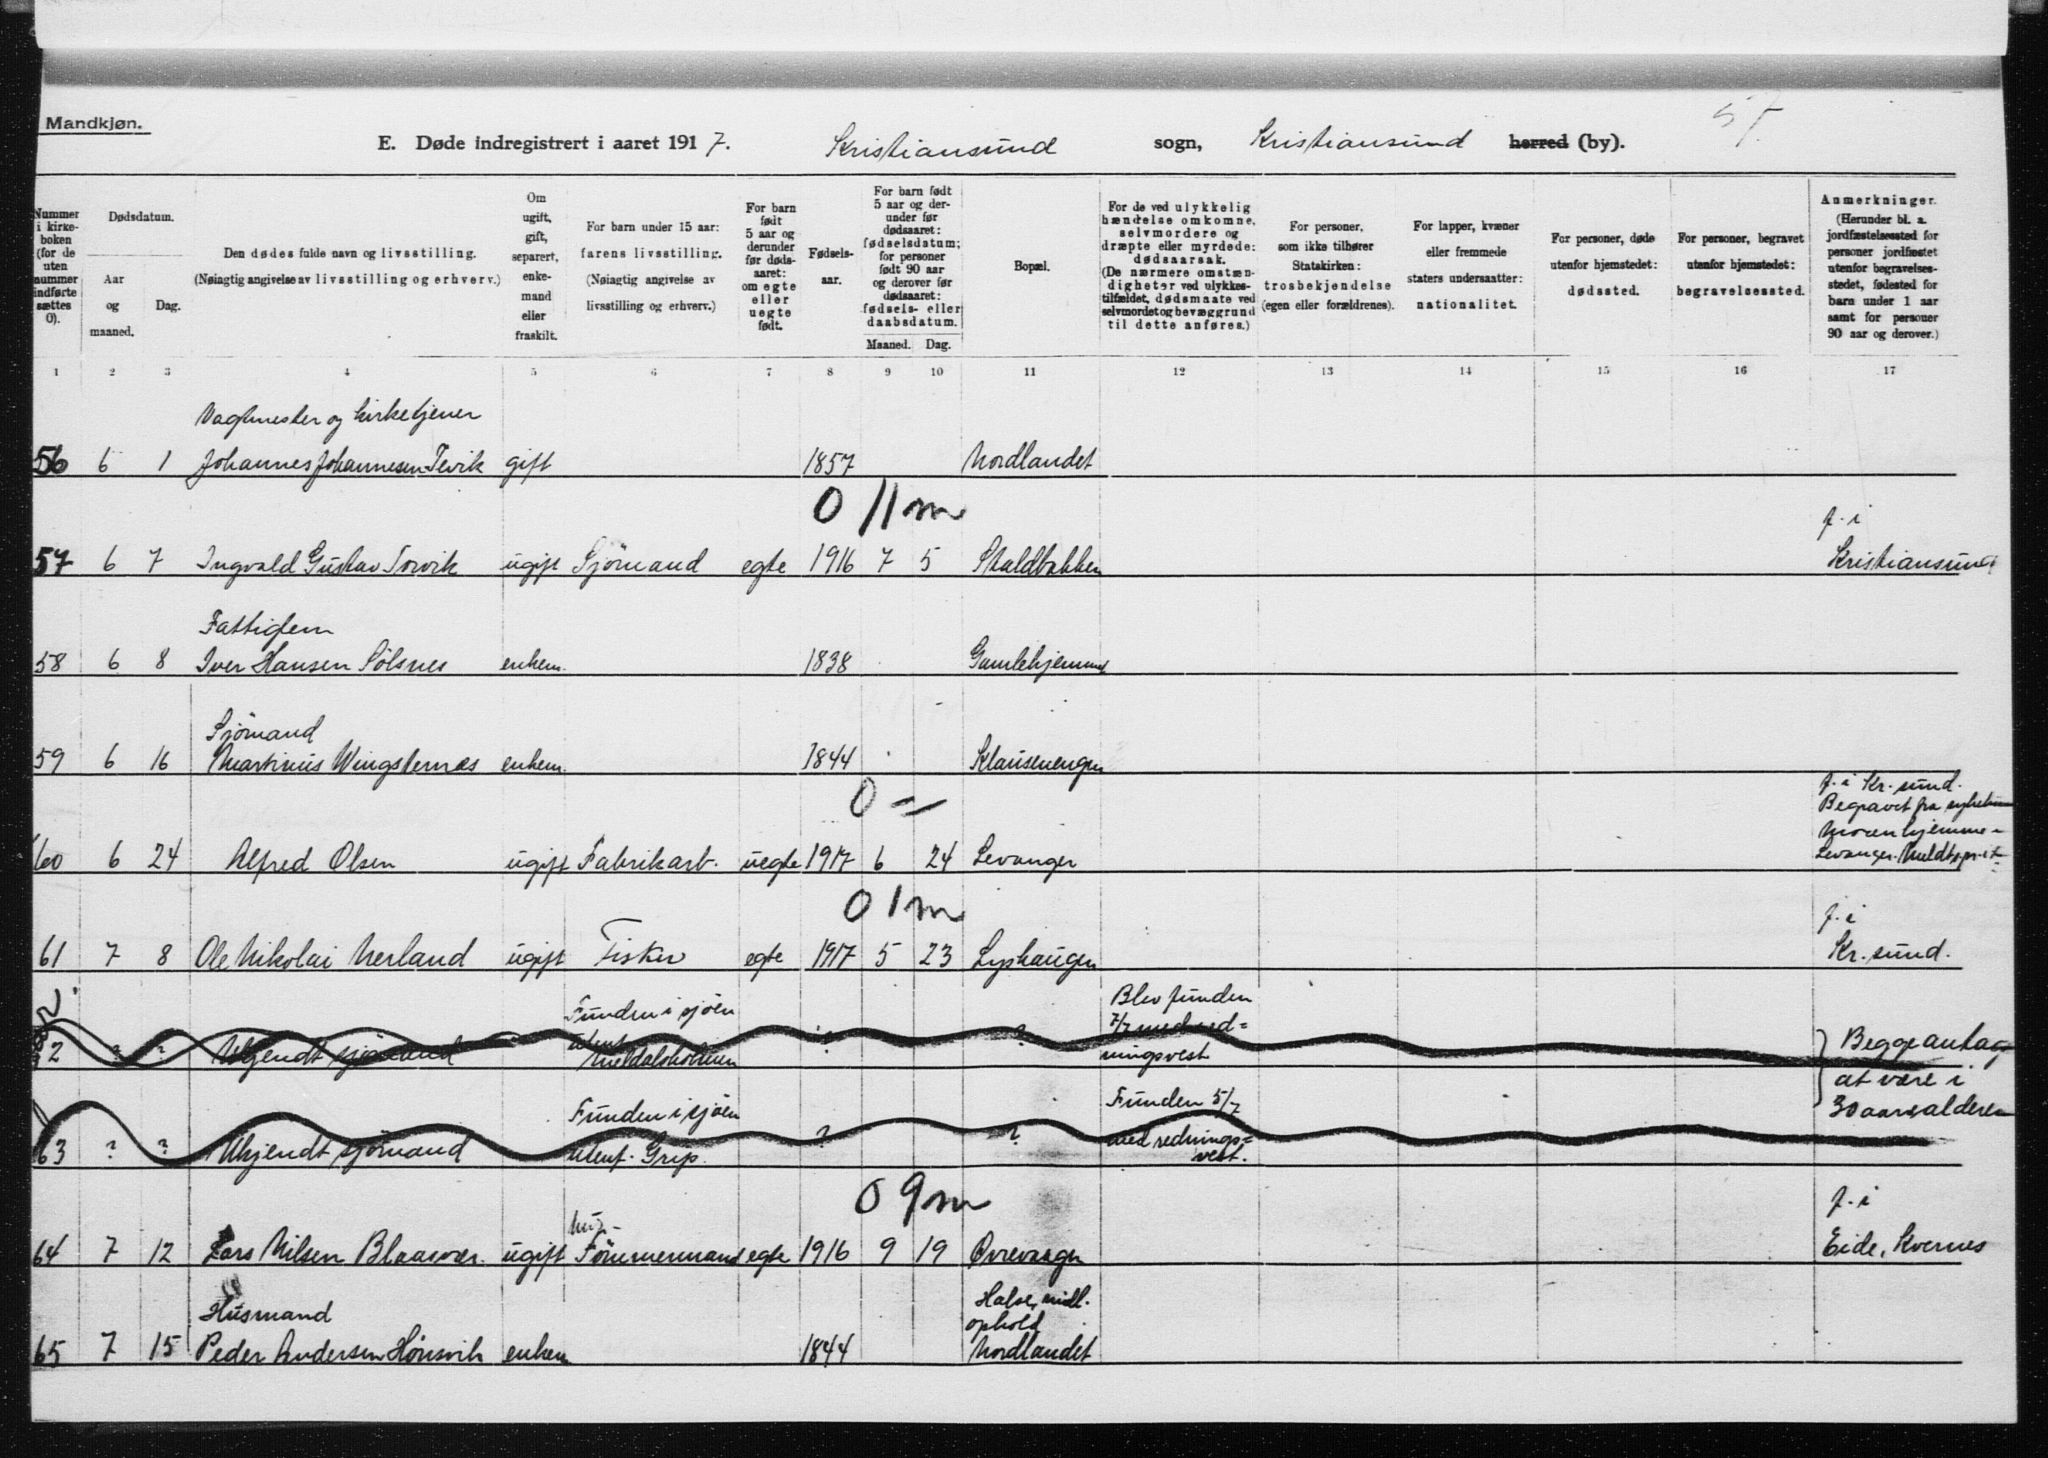 57
Mandkjøn.
E. Døde indregistrert i aaret 1917. Kristiansund sogn, Kristiansund herred (by).
Nummer i kirke-boken (for de uten nummer indførte sættes 0).
Dødsdatum.
Aar og maaned.
Dag.
Den dødes fulde navn og livsstilling.
(Nøiagtig angivelse av livsstilling og erhverv.)
Om ugift, gift, separert, enke-mand eller fraskilt.
For barn under 15 aar:
farens livsstilling.
(Nøiagtig angivelse av livsstilling og erhverv.)
For barn født 5 aar og derunder før døds-aaret: om egte eller uegte født.
Fødsels-aar.
For barn født 5 aar og der-under før dødsaaret: fødselsdatum; for personer født 90 aar og derover før dødsaaret: fødsels- eller daabsdatum.
Maaned. Dag.
Bopæl.
For de ved ulykkelig hændelse omkomne, selvmordere og dræpte eller myrdede: dødsaarsak.
(De nærmere omstæn-digheter ved ulykkes-tilfældet, dødsmaate ved selvmordet og bevæggrund til dette anføres.)
For personer, som ikke tilhører Statskirken: trosbekjendelse (egen eller forældrenes).
For lapper, kvæner eller fremmede staters undersaatter: nationalitet.
For personer, døde utenfor hjemstedet: dødssted.
For personer, begravet utenfor hjemstedet: begravelsessted.
Anmerkninger.
(Herunder bl. a. jordfæstelsessted for personer jordfæstet utenfor begravelses-stedet, fødested for barn under 1 aar samt for personer 90 aar og derover.)
1 2 3 4 5 6 7 8 9 10 11 12 13 14 15 16 17
Vagtmester og kirketjener
56 6 1 Johannes Johannesen Tevik gift 1857 Nordlandet
0 11 m
f. i
57 6 7 Ingvald Gustav Torvik ugift Sjömand egte 1916 7 5 Staldbakken Kristiansund
Fattiglem
58 6 8 Iver Hansen Sölsnes enkem. 1838 Gamlehjemmet
Sjömand
59 6 16 Martinius Wingsternæs enkem. 1844 Klausenengen
0 =
f. i Kr. sund.
Begravet fra
Moren hjemme-
60 6 24 Alfred Olsen ugift Fabrikarb. uegte 1917 6 24 Levanger Levanger.
0 1 m
f. i
61 7 8 Ole Nikolai Nerland ugift Fisker egte 1917 5 23 Lyshaugen Kr. sund.
Funden i sjöen Blev funden
utenf. ? ? 7/7 med red=
62 ? ? Ukjendt sjömand ningsvest Begge antages
at være i
Funden i sjöen Funden 5/7 30 aars alderen
? ? med rednings=
63 ? ? Ukjendt sjömand utenf. Grip. vest.
0 9 m
f. i
64 7 12 Lars Nilsen Blaasvær. ugift Tömmermand egte 1916 9 19 Övrevaagen Eide, Kvernes
Halse, midl.
Husmand ophold
65 7 15 Peder Andersen Hönsvik enkem 1844 Nordlandet